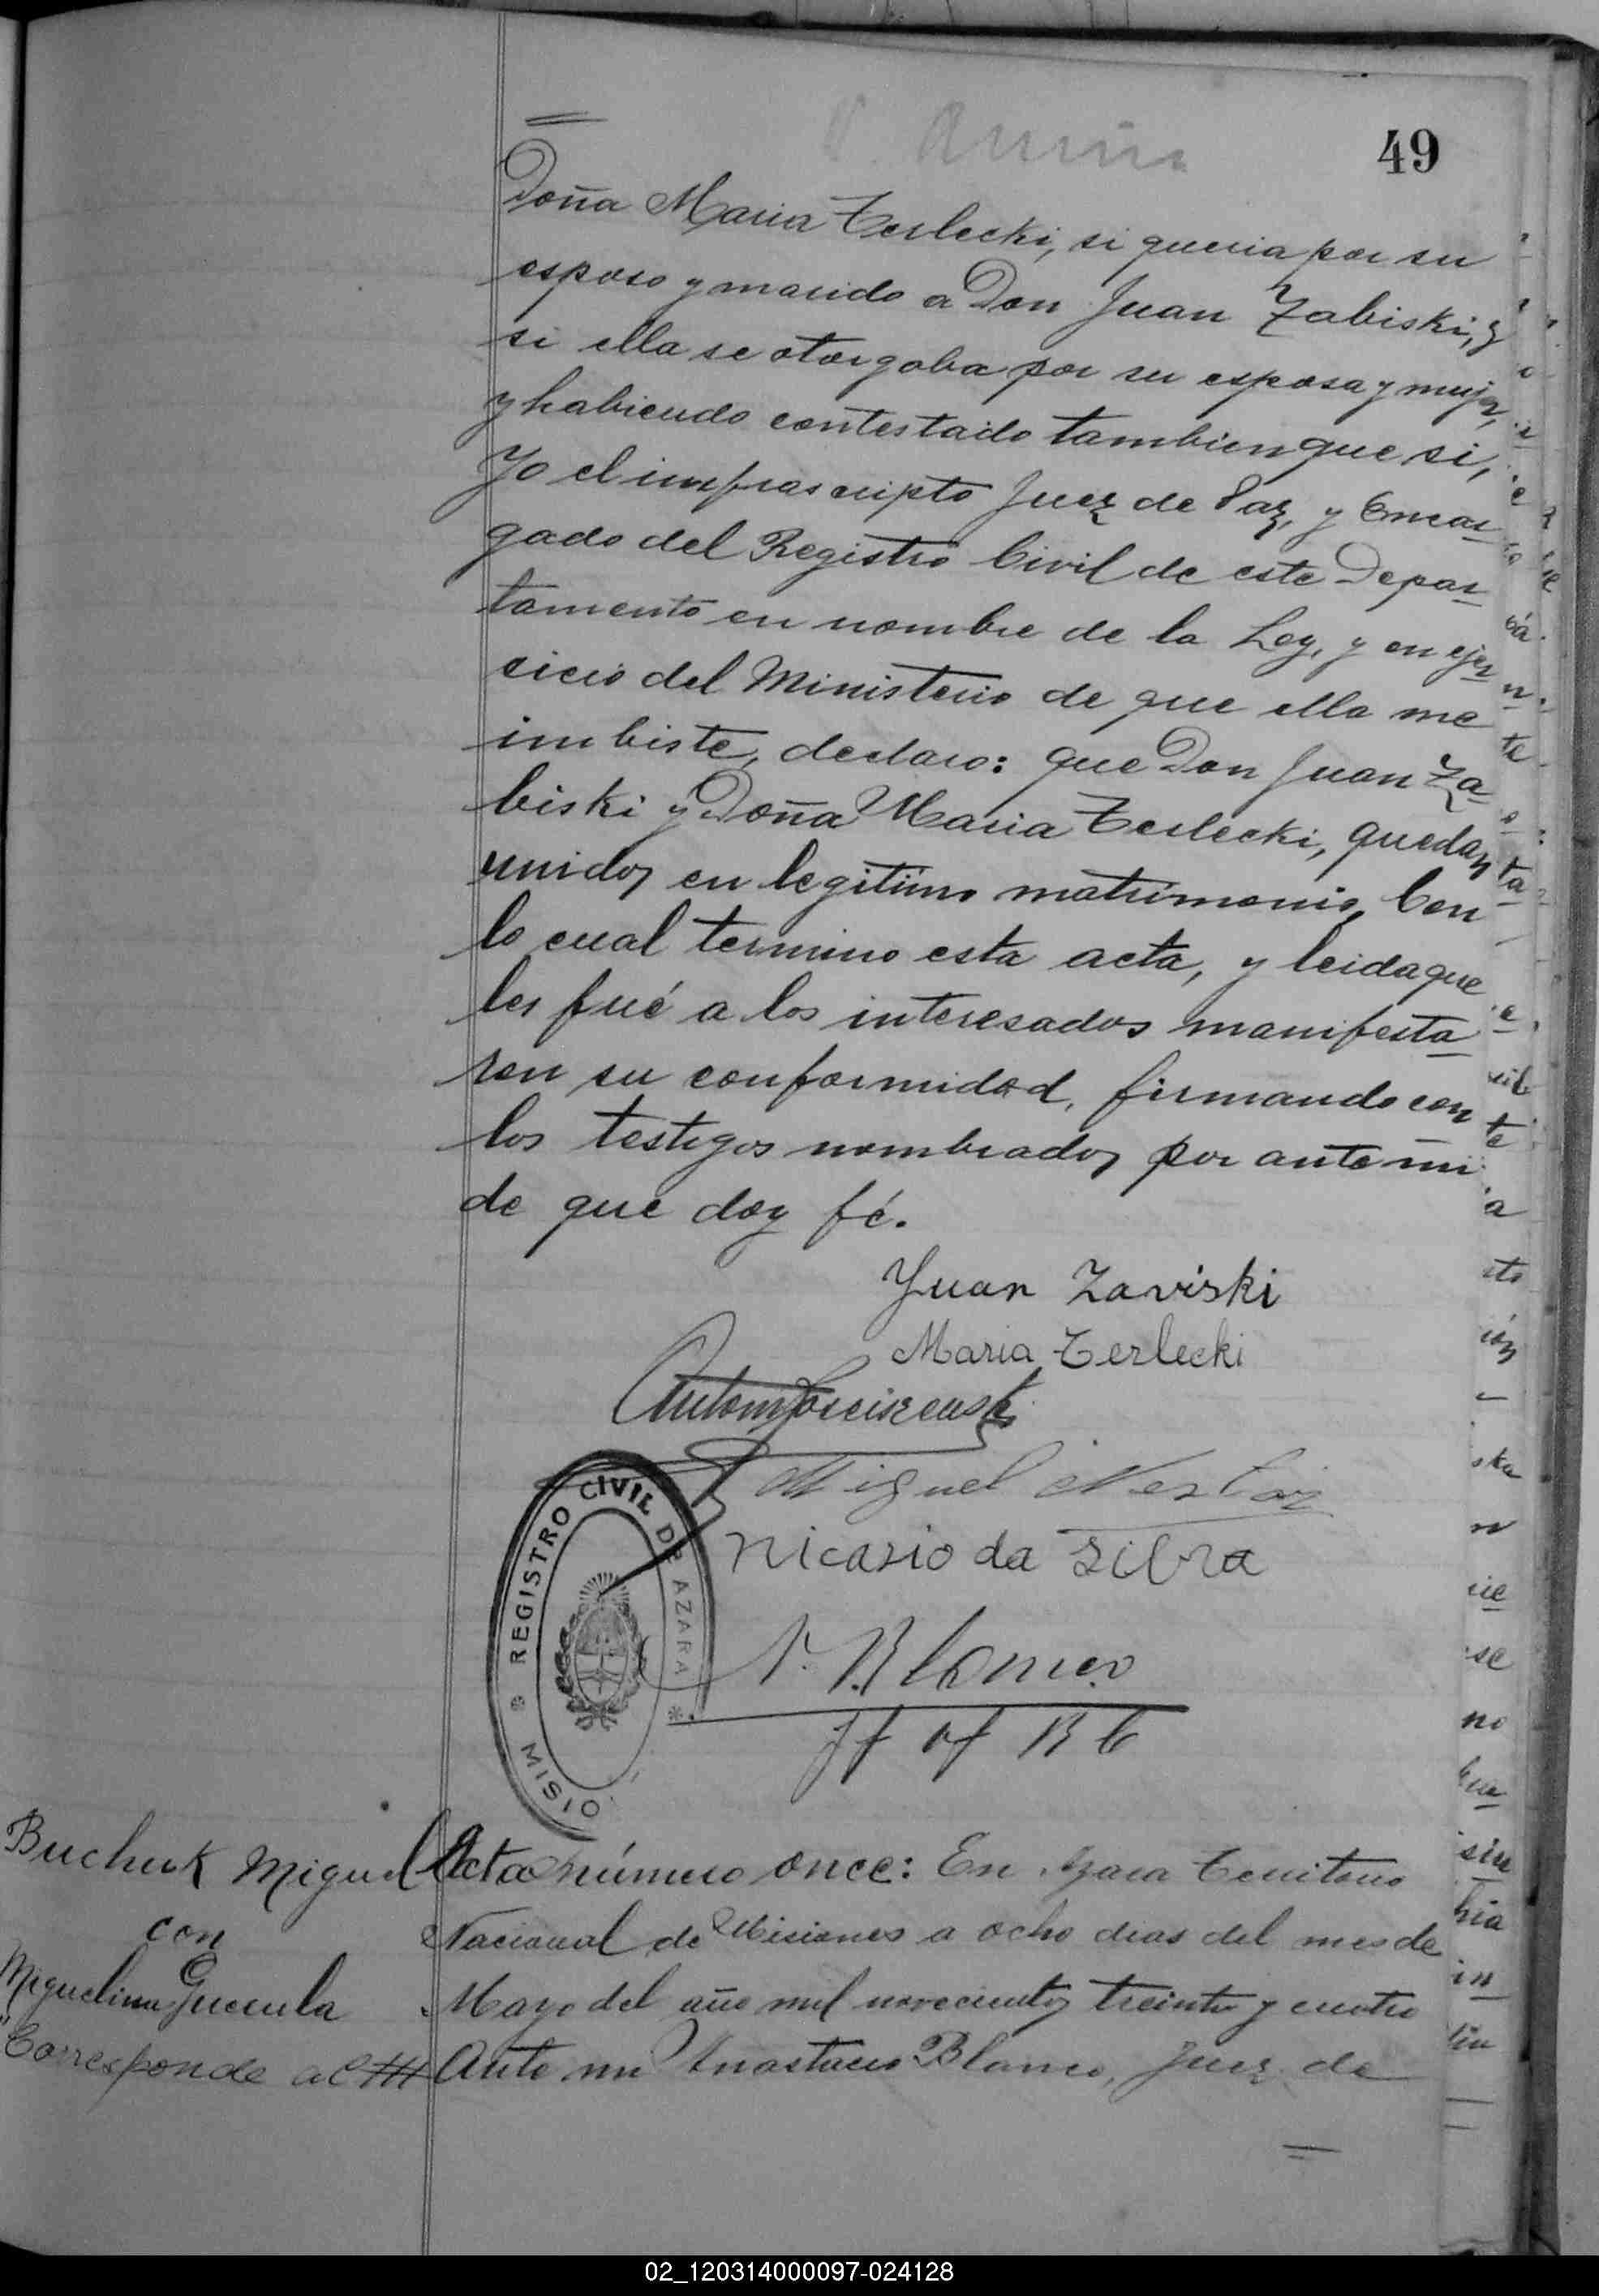 49
Doña Maria Terlecki, si queria por su
esposo y marido a Don Juan Zabiski, y
si ella se otorgaba por su esposa y mujer,
y habiendo contestado tambien que si,
Yo el infrascripto Juez de Paz, y Encar
gado del Registro Civil de este Depar
tamento en nombre de la Ley, y en ejer
cicio del Ministerio de que ella me
imbiste, declaro: que Don Juan Za
biski y Doña Maria Terlecki, quedan
unidos en legitimo matrimonio, Con
lo cual termino esta acta, y leida que
les fué a los interesados manifesta
ron su conformidad, firmando con
los testigos nombrados por ante mi
de que doy fé.
Juan Zaviski
Maria Terlecki
Miguel
Nicasio da Silva
A. Blanco
REGISTRO CIVIL DE AZARA
MISIO
Buchuk Miguel
con
Miguelina
Corresponde al
Acta número once: En Azara Territorio
Nacional de Misiones a ocho dias del mes de
Mayo del año mil novecientos treinta y cuatro
Ante mi Anastacio Blanco, Juez de
02_120314000097-024128